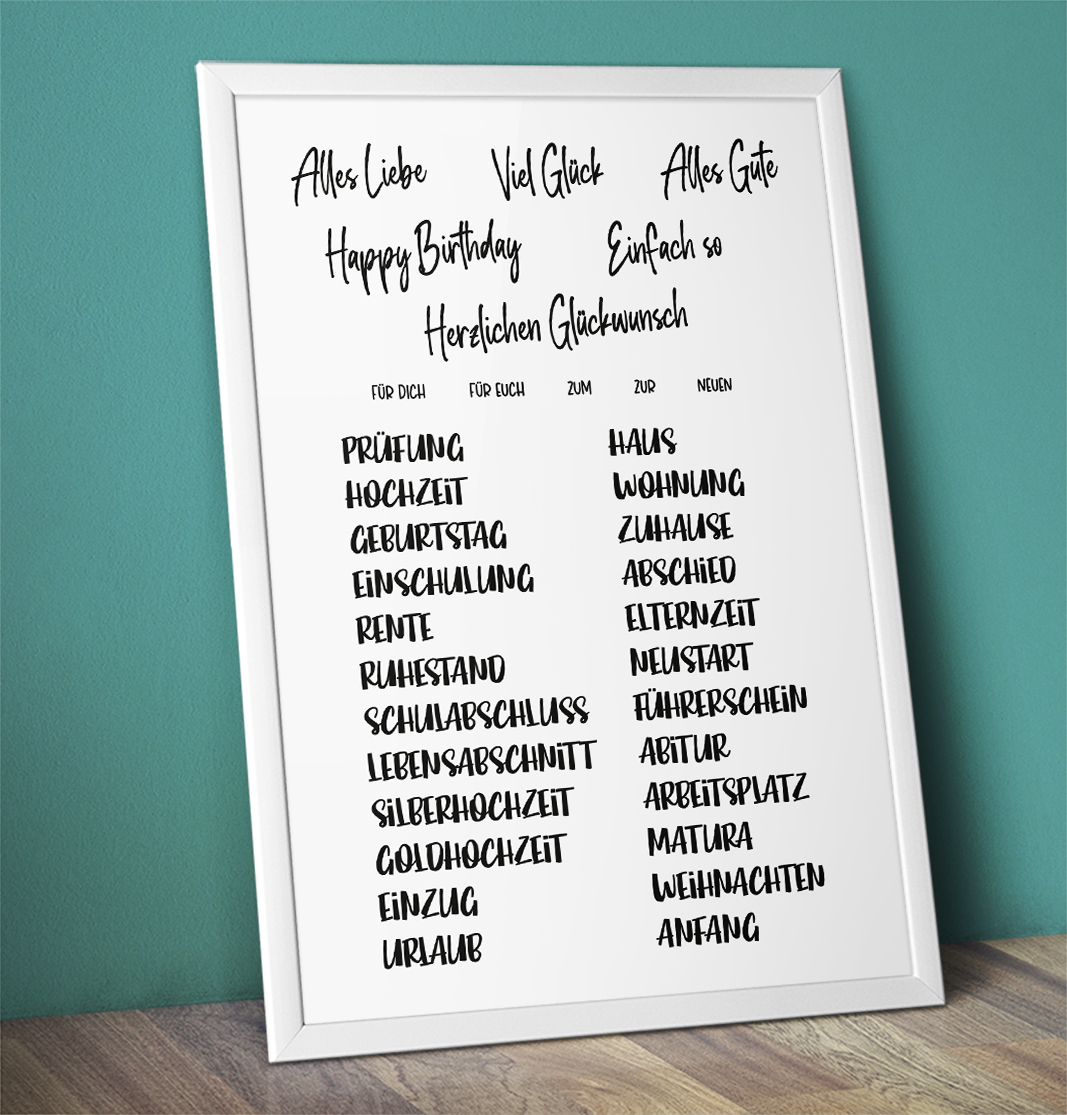 Alles Liebe Viel Glück Alles Gute
Happy Birthday Einfach so
Herzlichen Glückwunsch
FÜR DICH FÜR EUCH ZUM ZUR NEUEN
PRÜFUNG
HOCHZEIT
GEBURTSTAG
EINSCHULUNG
RENTE
RUHESTAND
SCHULABSCHLUSS
LEBENSABSCHNITT
SILBERHOCHZEIT
GOLDHOCHZEIT
EINZUG
URLAUB
HAUS
WOHNUNG
ZUHAUSE
ABSCHIED
ELTERNZEIT
NEUSTART
FÜHRERSCHEIN
ABITUR
ARBEITSPLATZ
MATURA
WEIHNACHTEN
ANFANG